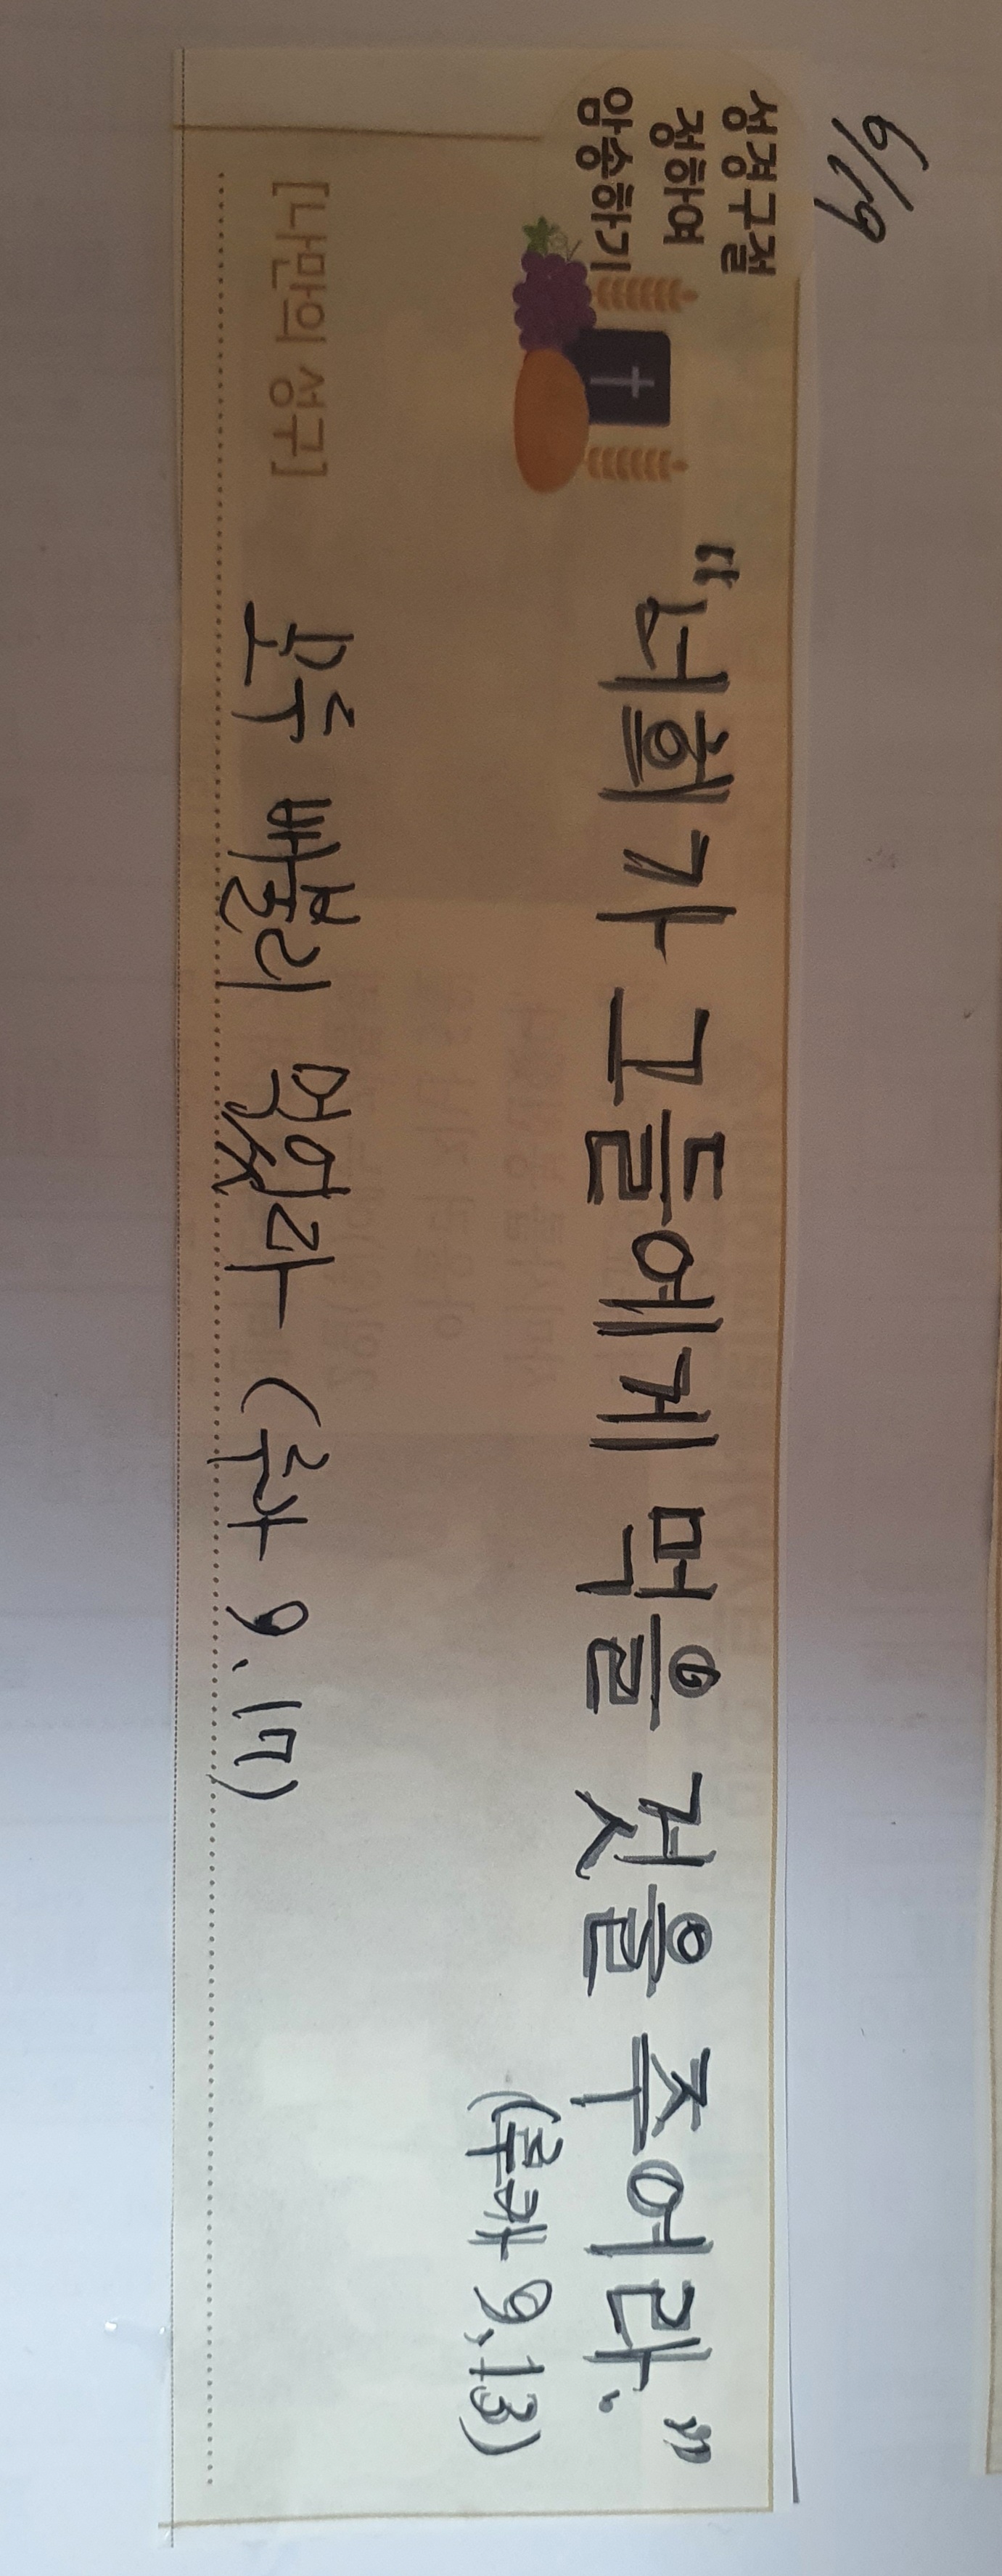 6/19
성경구절
정하여
암송하기
“너희가 그들에게 먹을 것을 주어라.”
(루카 9,13)
[나만의 성구]
모두 배불리 먹었다 (루카 9.17)